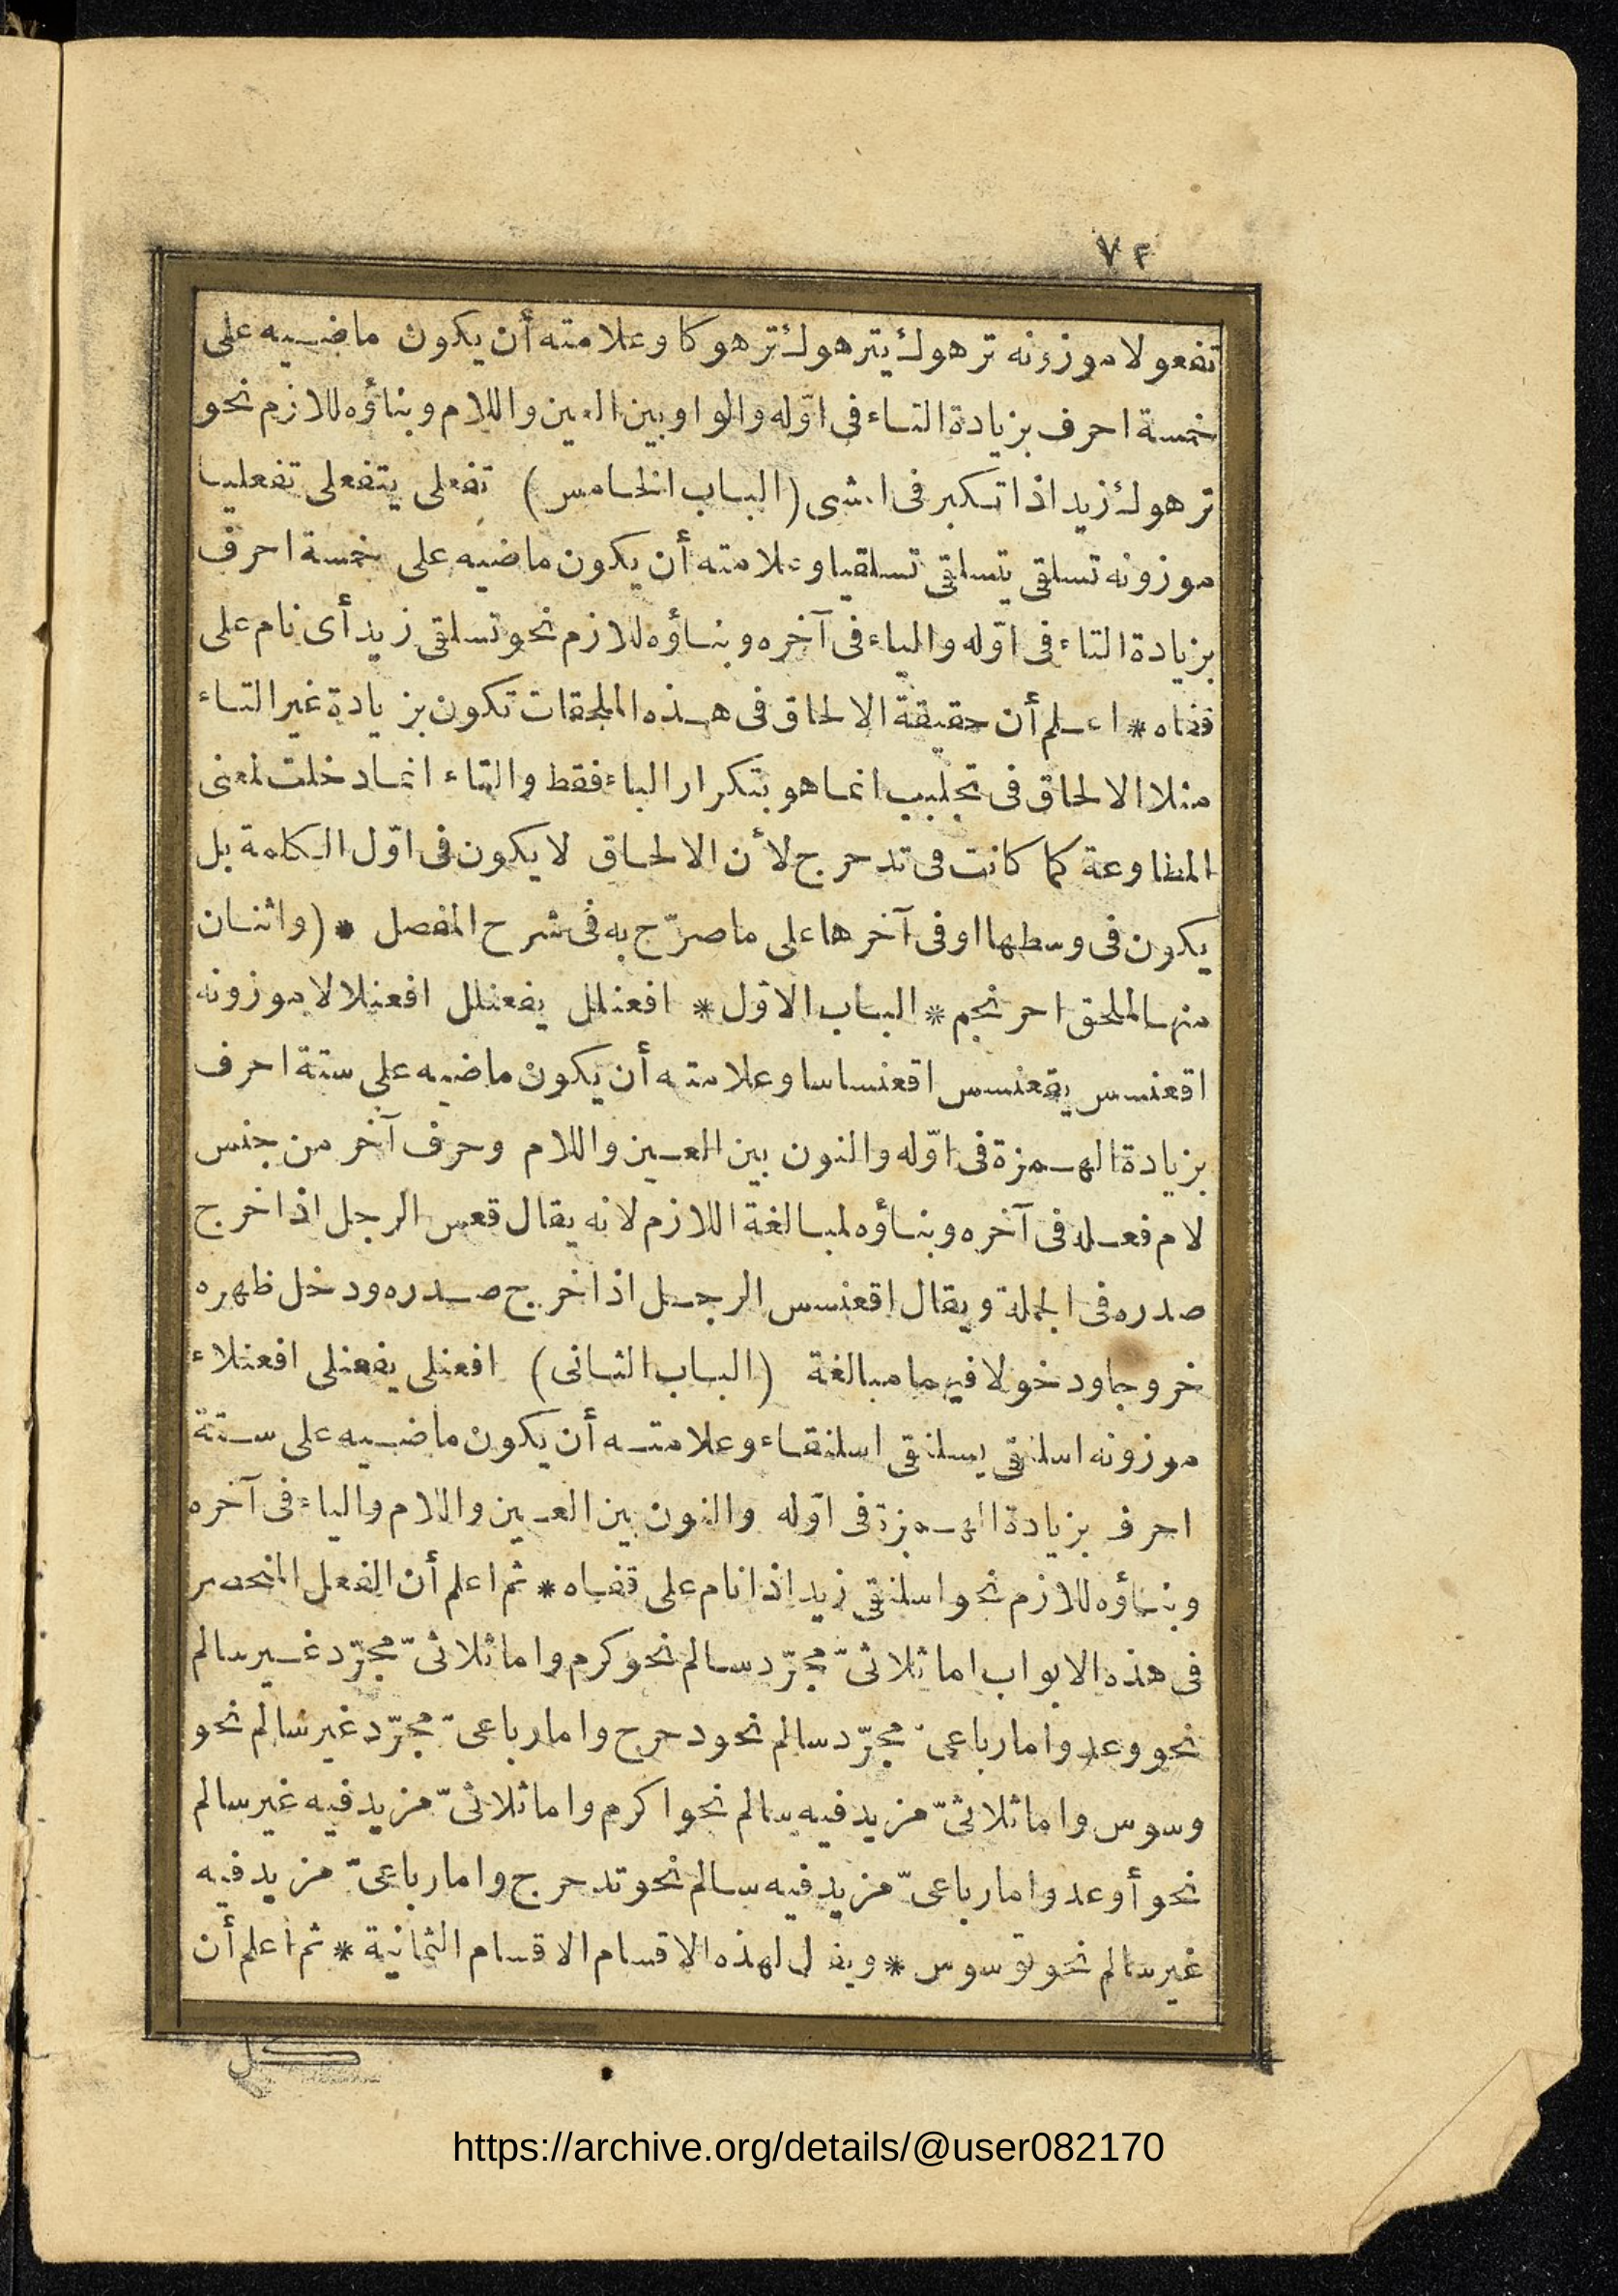 ٧٣
تفعولا موزونه ترهوك يترهوك ترهوكا وعلامته أن يكون ماضيه على
خمسة احرف بزيادة التاء فى اوّله والواو بين العين واللام وبناؤه للازم نحو
ترهوك زيد اذا تكبر فى المشى (الباب الخامس) تفعلى يتفعلى تفعليا
موزونه تسلقى يتسلقى تسلقيا وعلامته أن يكون ماضيه على خمسة احرف
بزيادة التاء فى اوّله والياء فى آخره وبناؤه للازم نحو تسلقى زيد أى نام على
قفاه * اعلم أن حقيقة الالحاق فى هذه الملحقات تكون بزيادة غير التاء
مثلا الالحاق فى تجلبب انما هو بتكرار الباء فقط والتاء انما دخلت لمعنى
المطاوعة كما كانت فى تدحرج لأن الالحاق لا يكون فى اوّل الكلمة بل
يكون فى وسطها او فى آخرها على ما صرّح به فى شرح المفصل * (واثنان
منها لملحق احرنجم * الباب الاوّل * افعنلل يفعنلل افعنلالا موزونه
اقعنسس يقعنسس اقعنساسا وعلامته أن يكون ماضيه على ستة احرف
بزيادة الهمزة فى اوّله والنون بين العين واللام وحرف آخر من جنس
لام فعله فى آخره وبناؤه لمبالغة اللازم لانه يقال قعس الرجل اذا خرج
صدره فى الجملة ويقال اقعنسس الرجل اذا خرج صدره ودخل ظهره
خروجا ودخولا فيهما مبالغة (الباب الثانى) افعنلى يفعنلى افعنلاء
موزونه اسلنقى يسلنقى اسلنقاء وعلامته أن يكون ماضيه على ستة
احرف بزيادة الهمزة فى اوّله والنون بين العين واللام والياء فى آخره
وبناؤه للازم نحو اسلنقى زيد اذا نام على قفاه * ثم اعلم أن الفعل المنحصر
فى هذه الابواب اما ثلاثىّ مجرّد سالم نحو كرم واما ثلاثىّ مجرّد غير سالم
نحو وعد واما رباعىّ مجرّد سالم نحو دحرج واما رباعىّ مجرّد غير سالم نحو
وسوس واما ثلاثىّ مزيد فيه سالم نحو اكرم واما ثلاثىّ مزيد فيه غير سالم
نحو أوعد واما رباعىّ مزيد فيه سالم نحو تدحرج واما رباعىّ مزيد فيه
غير سالم نحو توسوس * ويقال لهذه الاقسام الاقسام الثمانية * ثم اعلم أن
كل
https://archive.org/details/@user082170